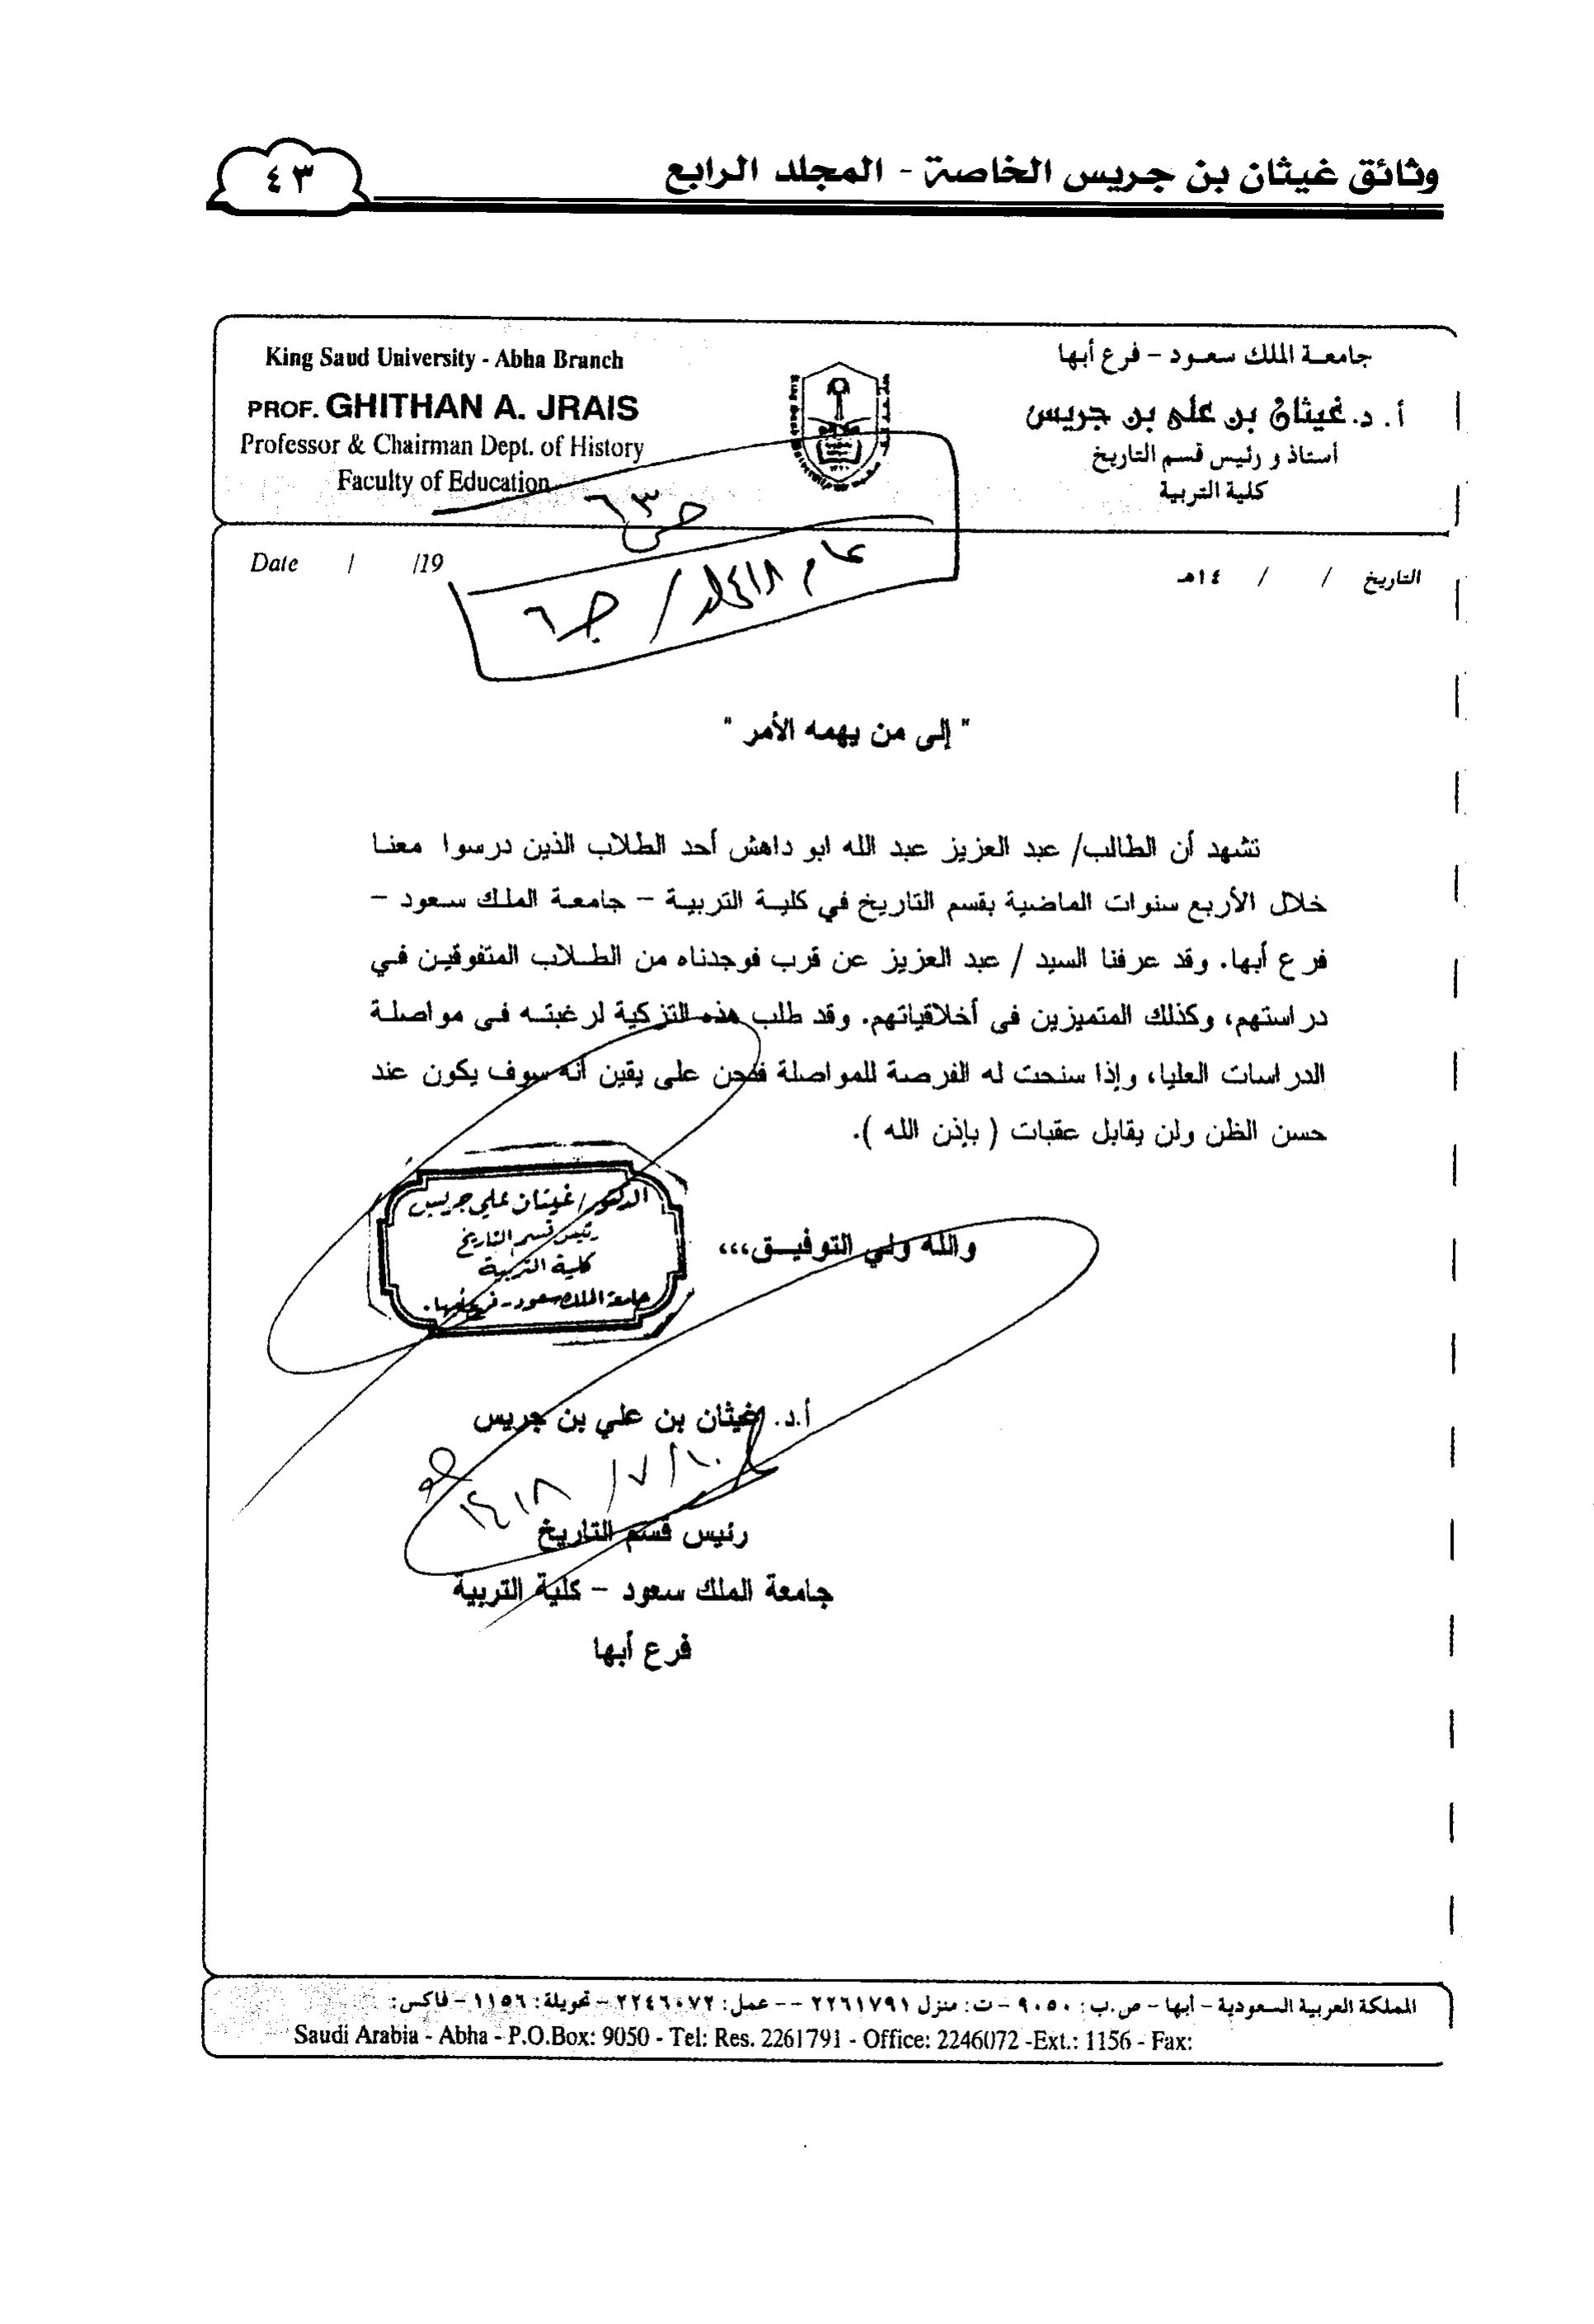 وثائق غيثان بن جريس الخاصة - المجلد الرابع
٤٣
جامعة الملك سعود - فرع أبها
أ. د. غيثان بن علي بن جريس
أستاذ و رئيس قسم التاريخ
كلية التربية
King Saud University - Abha Branch
PROF. GHITHAN A. JRAIS
Professor & Chairman Dept. of History
Faculty of Education
ص ٦٣
التاريخ / / ١٤هـ
Date / /19
عام ١٤١٨هـ / ج ٦
" إلى من يهمه الأمر "
نشهد أن الطالب/ عبد العزيز عبد الله ابو داهش أحد الطلاب الذين درسوا معنا
خلال الأربع سنوات الماضية بقسم التاريخ في كلية التربية – جامعة الملك سعود –
فرع أبها. وقد عرفنا السيد / عبد العزيز عن قرب فوجدناه من الطلاب المتفوقين في
دراستهم، وكذلك المتميزين فى أخلاقياتهم. وقد طلب هذه التزكية لرغبته فى مواصلة
الدراسات العليا، وإذا سنحت له الفرصة للمواصلة فنحن على يقين أنه سوف يكون عند
حسن الظن ولن يقابل عقبات ( بإذن الله ).
الدكتور/ غيثان علي جريس
رئيس قسم التاريخ
كلية التربية
جامعة الملك سعود - فرع أبها.
والله ولي التوفيق،،،
أ.د. غيثان بن علي بن جريس
١٤١٨/٧/١٠
رئيس قسم التاريخ
جامعة الملك سعود – كلية التربية
فرع أبها
المملكة العربية السعودية - أبها - ص.ب: ٩٠٥٠ - ت: منزل ٢٢٦١٧٩١ -- عمل: ٢٢٤٦٠٧٢ - تحويلة: ١١٥٦ - فاكس:
Saudi Arabia - Abha - P.O.Box: 9050 - Tel: Res. 2261791 - Office: 2246072 -Ext.: 1156 - Fax: